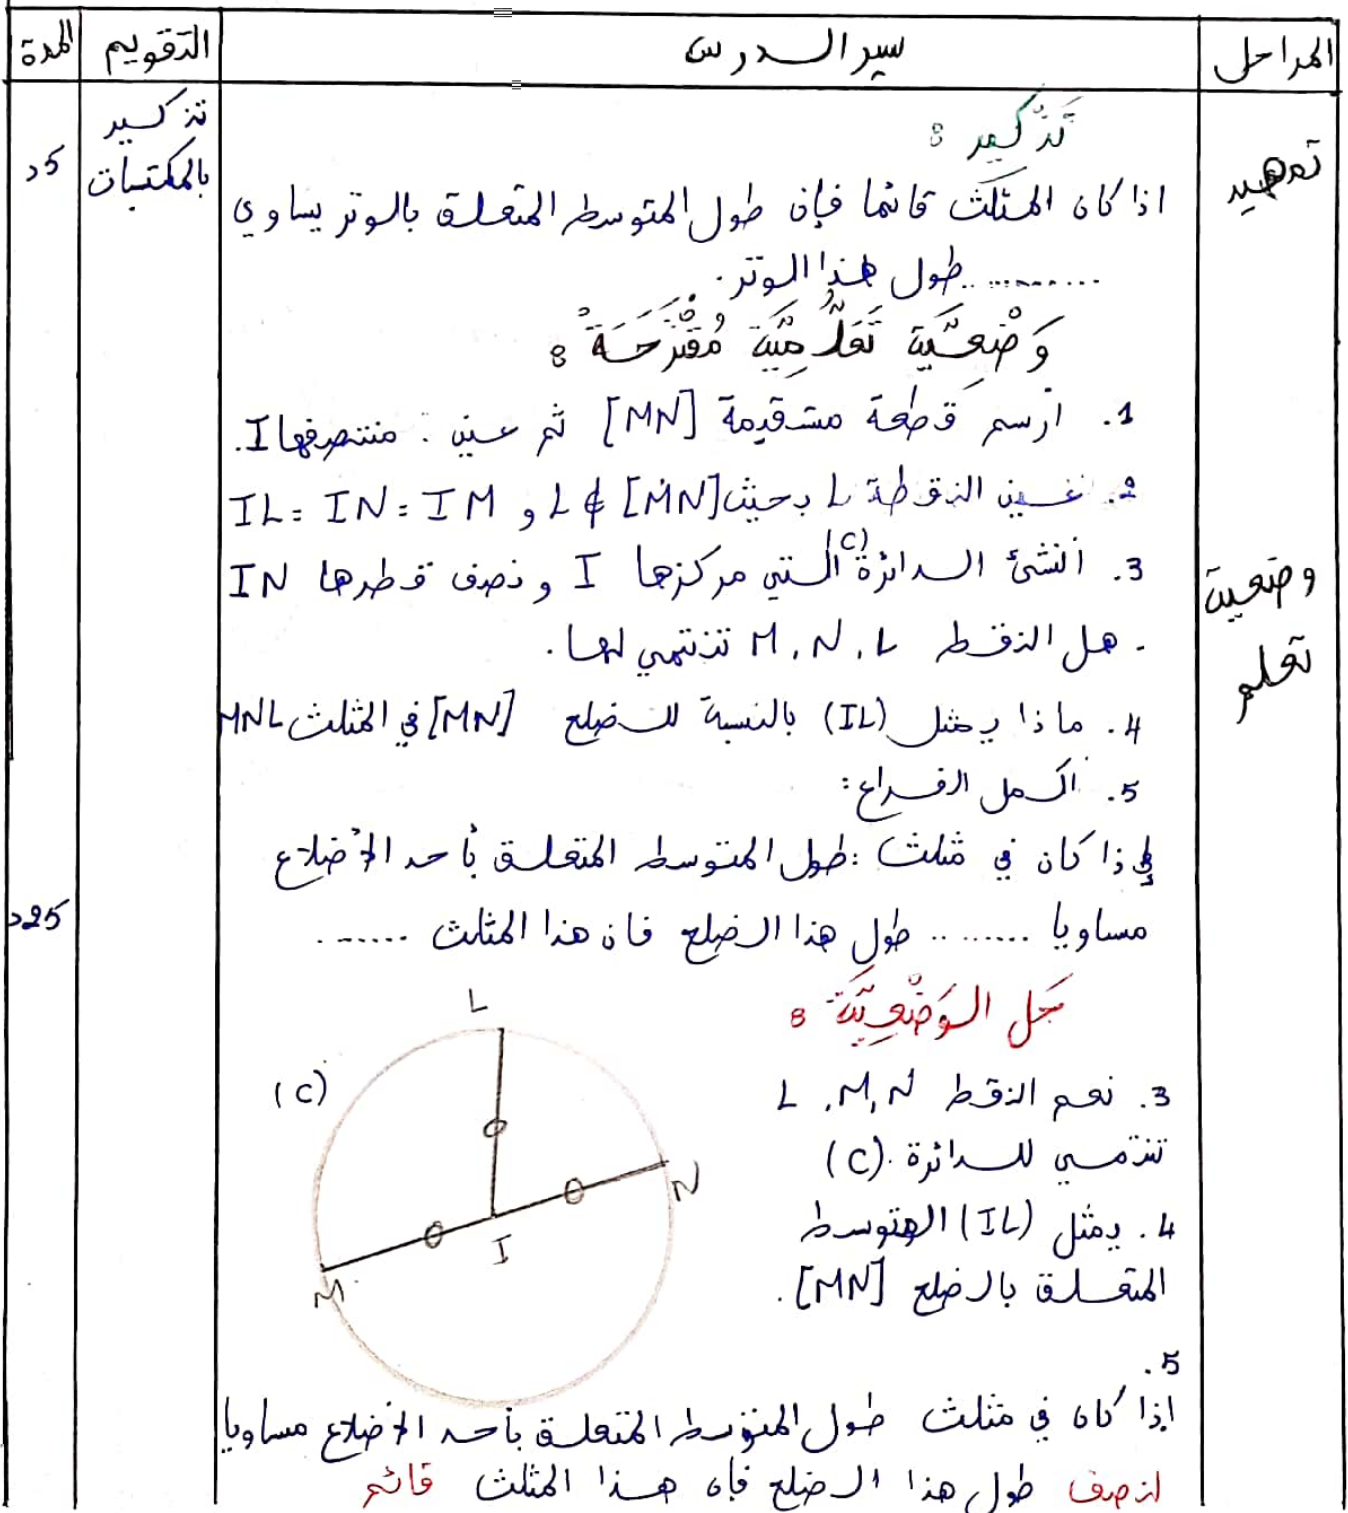 المراحل سير الدرس التقويم المدة
تمهيد
وضعية
تعلم
تَذْكير :
اذا كان المثلث قائما فإن طول المتوسط المتعلق بالوتر يساوي
........... طول هذا الوتر.
وَضْعِيَّة تَعَلُّمِيَّة مُقْتَرَحَةُ :
1. ارسم قطعة مستقيمة [MN] ثم عين : منتصفها I.
2. عين النقطة L بحيث L ∉ [MN] و IL = IN = IM
3. انشئ الدائرة (C) التي مركزها I و نصف قطرها IN
. هل النقط M , N , L تنتمي لها .
4. ماذا يمثل (IL) بالنسبة للضلع [MN] في المثلث MNL
5. اكمل الفراغ :
إذا كان في مثلث : طول المتوسط المتعلق بأحد الأضلاع
مساويا ......... طول هذا الضلع فان هذا المثلث .......
حَل الوَضْعِيَّة :
3. نعم النقط L , M, N
تنتمي للدائرة (C).
4. يمثل (IL) المتوسط
المتعلق بالضلع [MN] .
5.
إذا كان في مثلث طول المتوسط المتعلق بأحد الأضلاع مساويا
لنصف طول هذا الضلع فإن هذا المثلث قائم
L
(C)
N
I
M
تذكير
بالمكتسبات
5د
25د